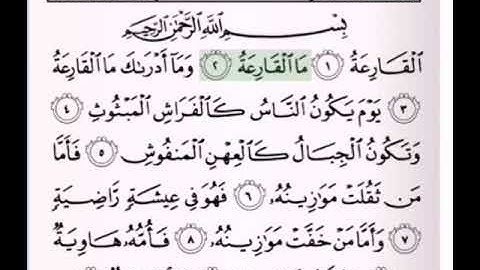 بِسْمِ ٱللَّهِ ٱلرَّحْمَٰنِ ٱلرَّحِيمِ
ٱلْقَارِعَةُ ١ مَا ٱلْقَارِعَةُ ٢ وَمَآ أَدْرَىٰكَ مَا ٱلْقَارِعَةُ
٣ يَوْمَ يَكُونُ ٱلنَّاسُ كَٱلْفَرَاشِ ٱلْمَبْثُوثِ ٤
وَتَكُونُ ٱلْجِبَالُ كَٱلْعِهْنِ ٱلْمَنفُوشِ ٥ فَأَمَّا
مَن ثَقُلَتْ مَوَٰزِينُهُۥ ٦ فَهُوَ فِى عِيشَةٍ رَّاضِيَةٍ
٧ وَأَمَّا مَنْ خَفَّتْ مَوَٰزِينُهُۥ ٨ فَأُمُّهُۥ هَاوِيَةٌ